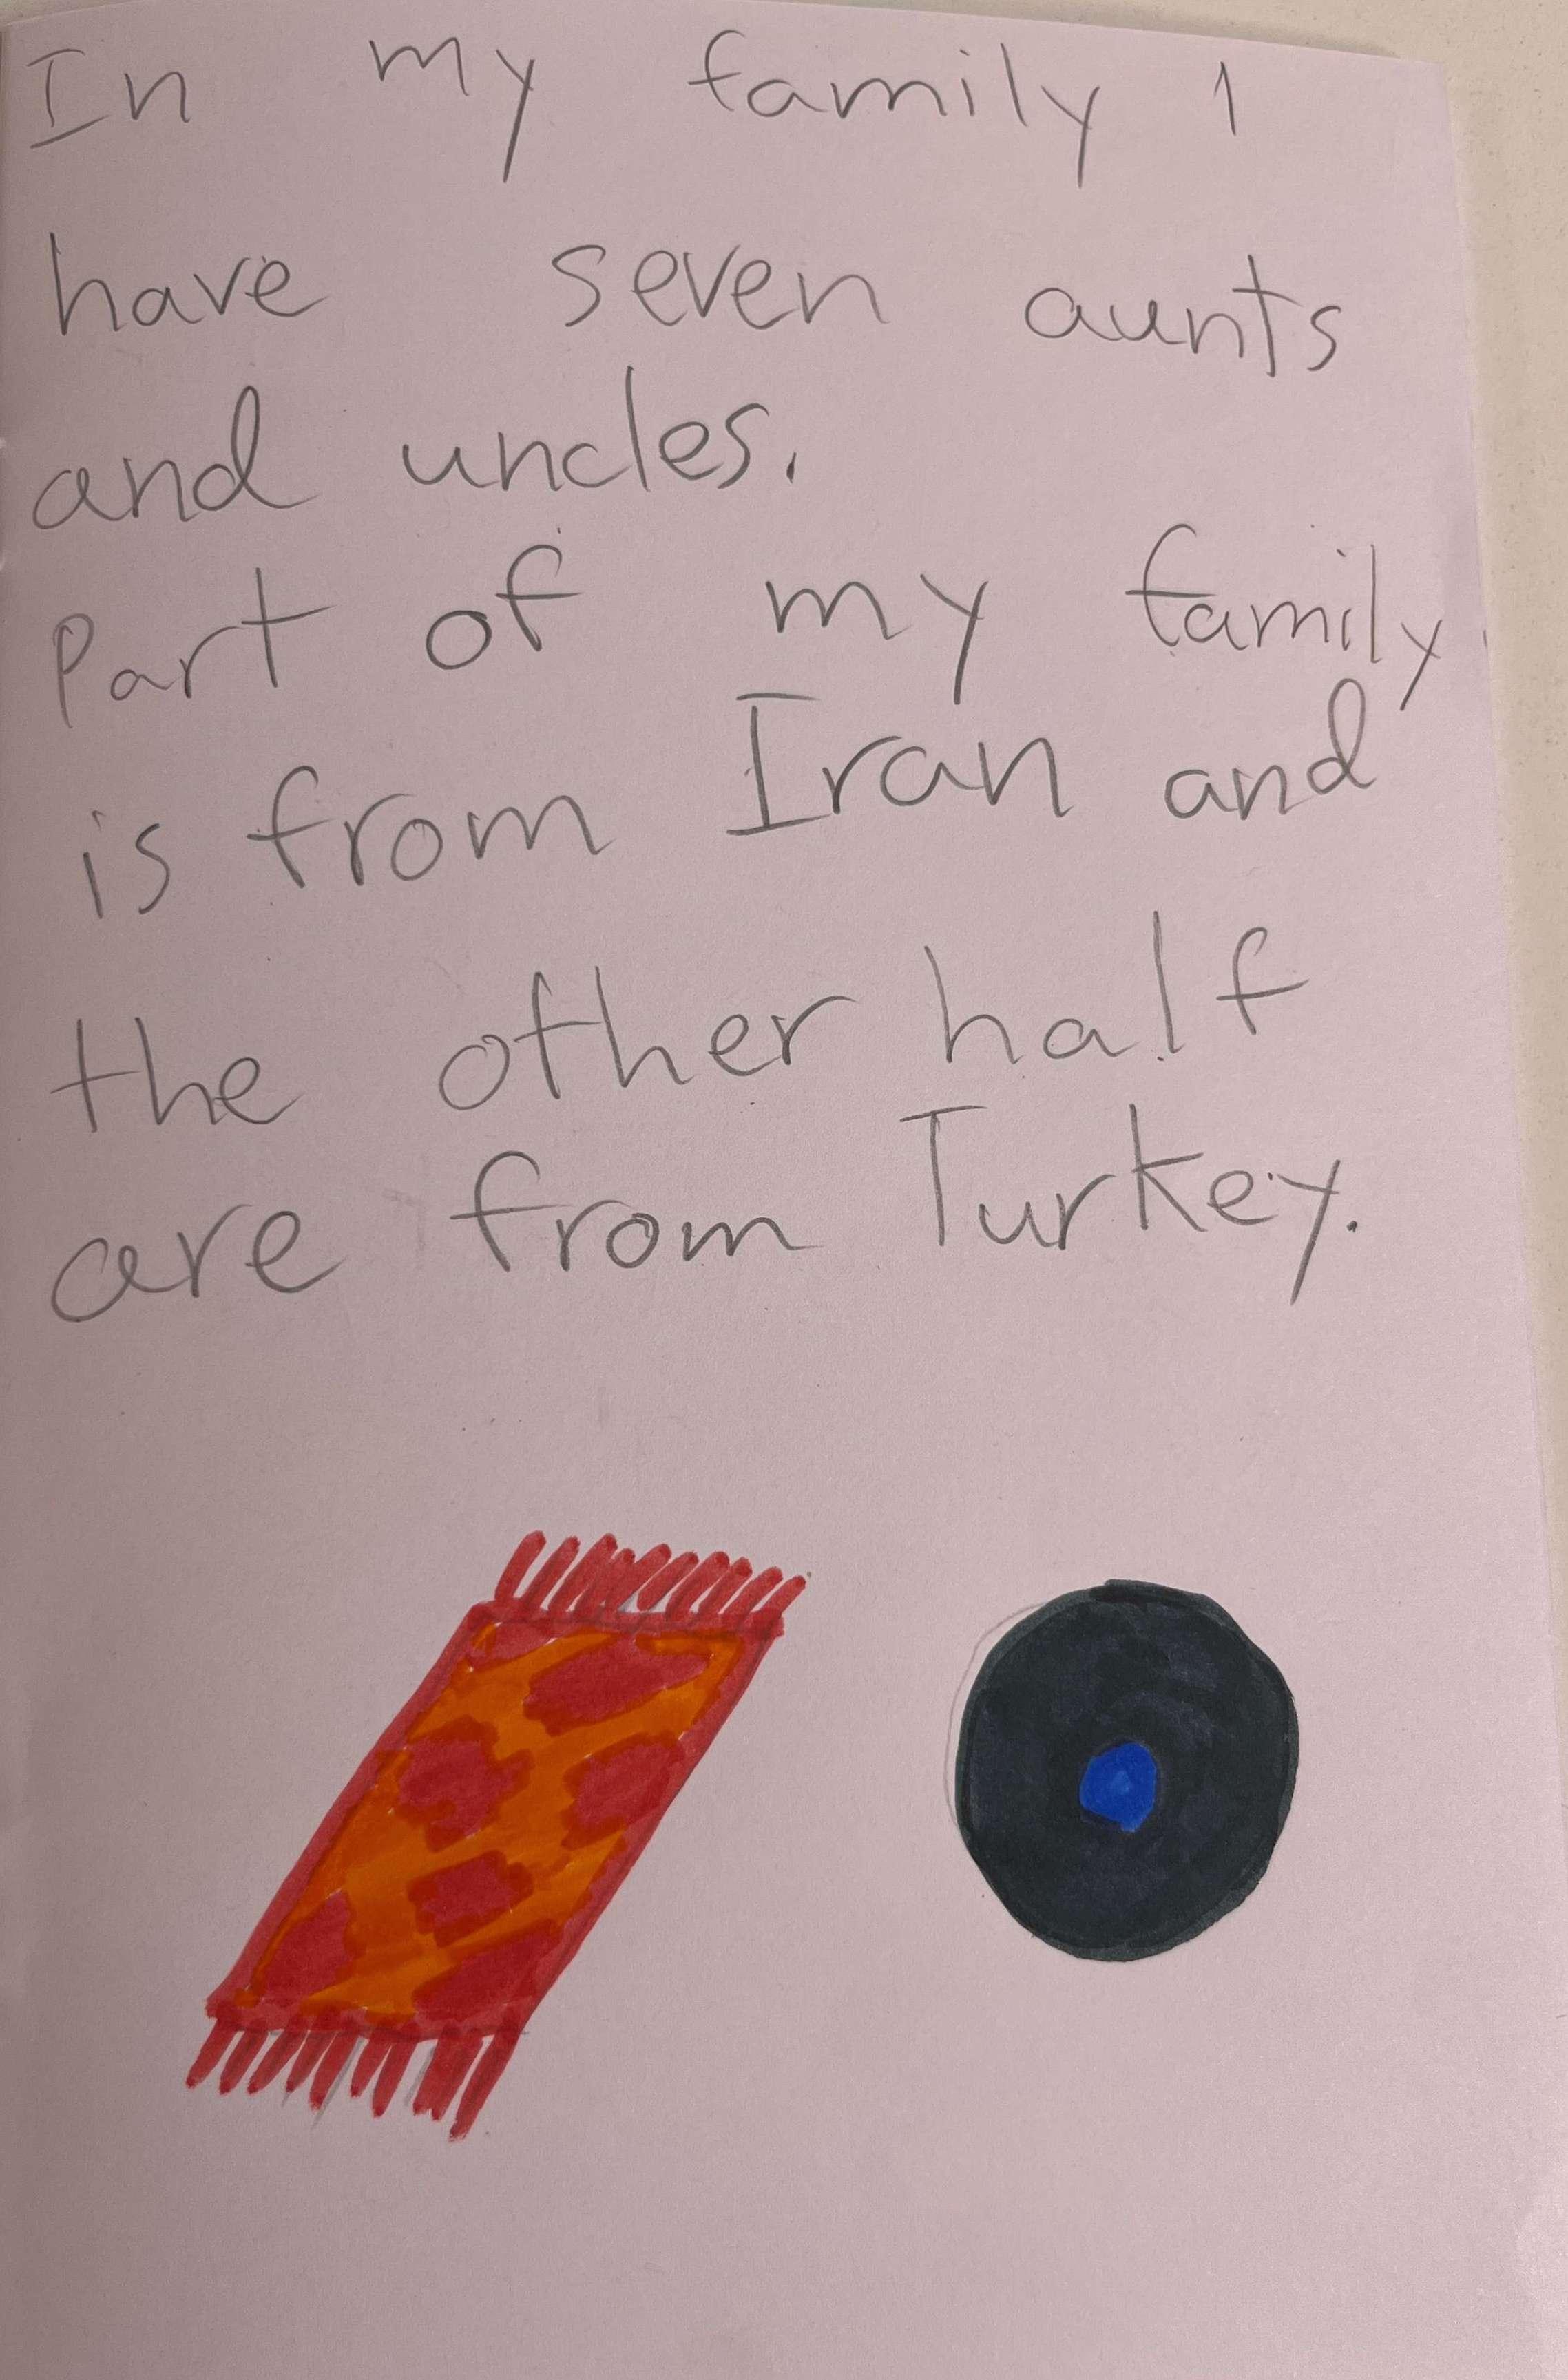 In my family I
have seven aunts
and uncles.
Part of my family
is from Iran and
the other half
are from Turkey.